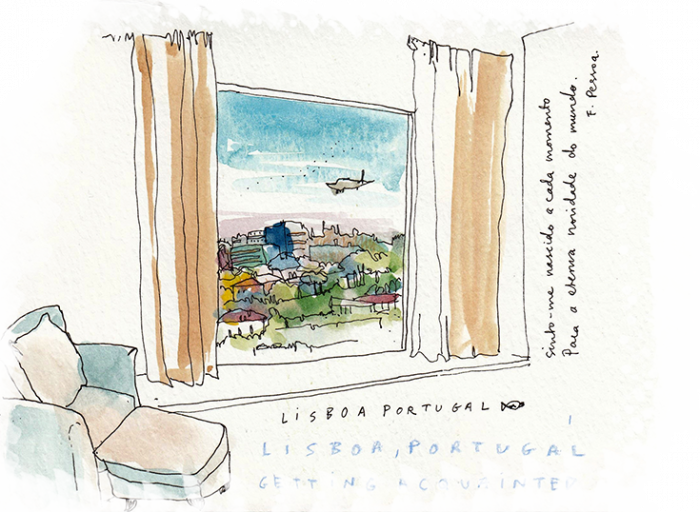 sinto-me nascido a cada momento
Para a eterna novidade do mundo.
F. Pessoa.
LISBOA PORTUGAL
LISBOA, PORTUGAL
GETTING ACQUAINTED